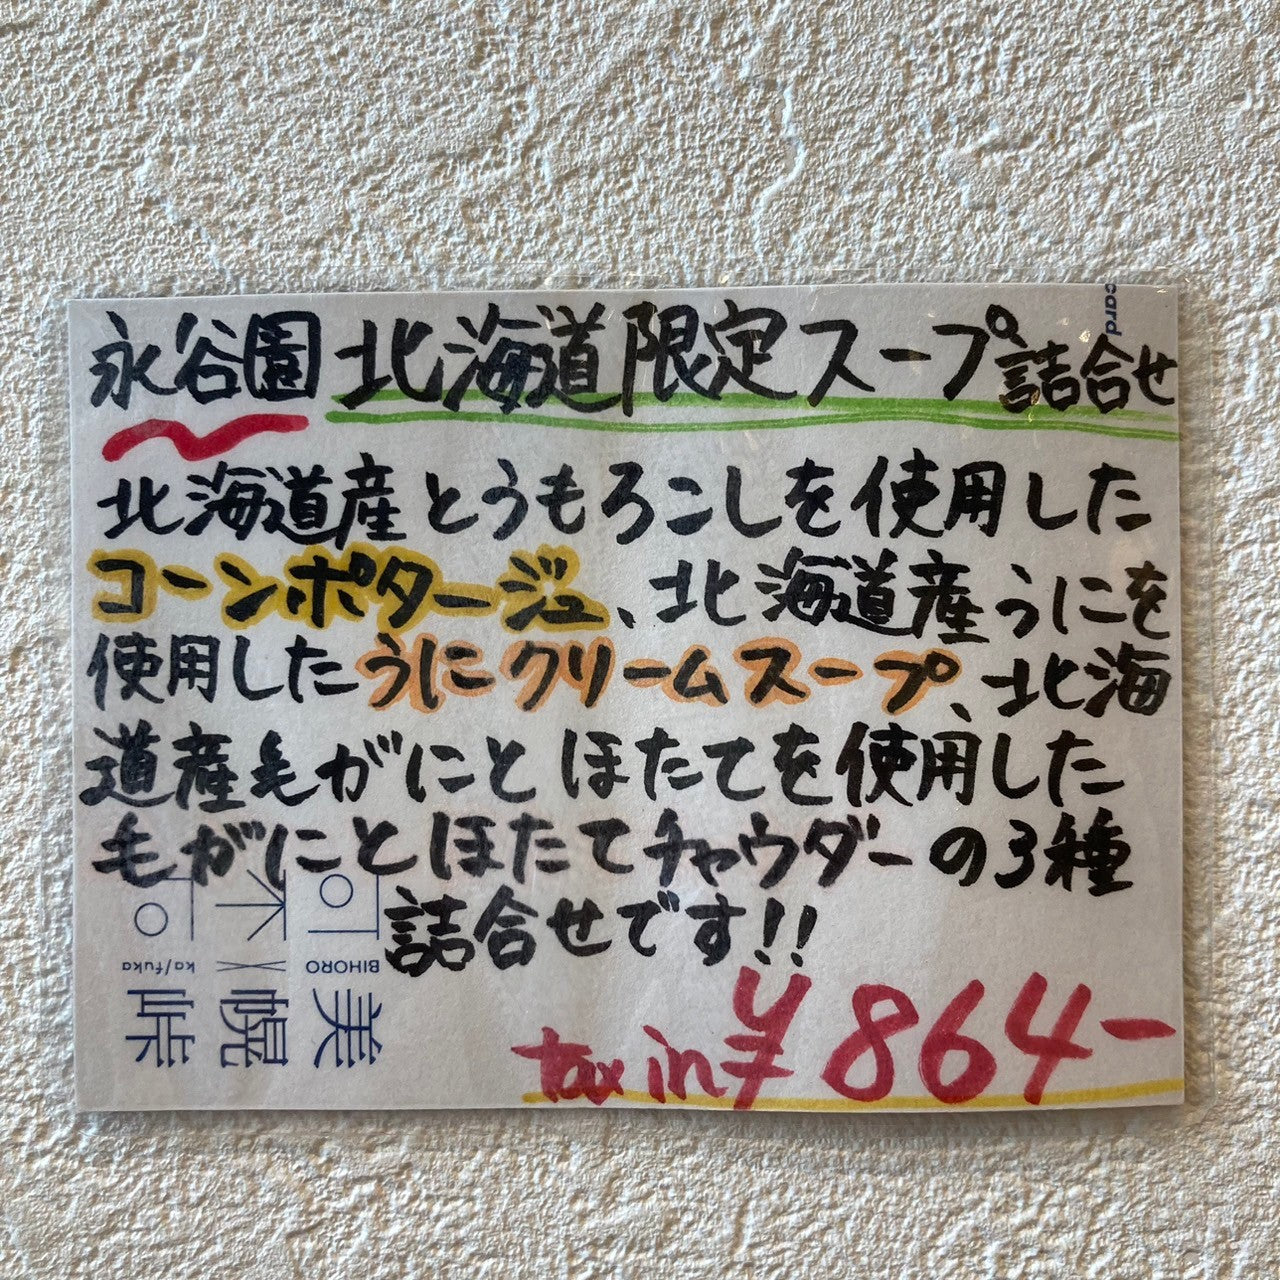 永谷園 北海道限定スープ詰合せ
北海道産とうもろこしを使用した
コーンポタージュ、北海道産うにを
使用したうにクリームスープ、北海
道産毛がにとほたてを使用した
毛がにとほたてチャウダーの3種
詰合せです!!
tax in ¥864-
card
BIHORO
ka/fuka
美幌峠